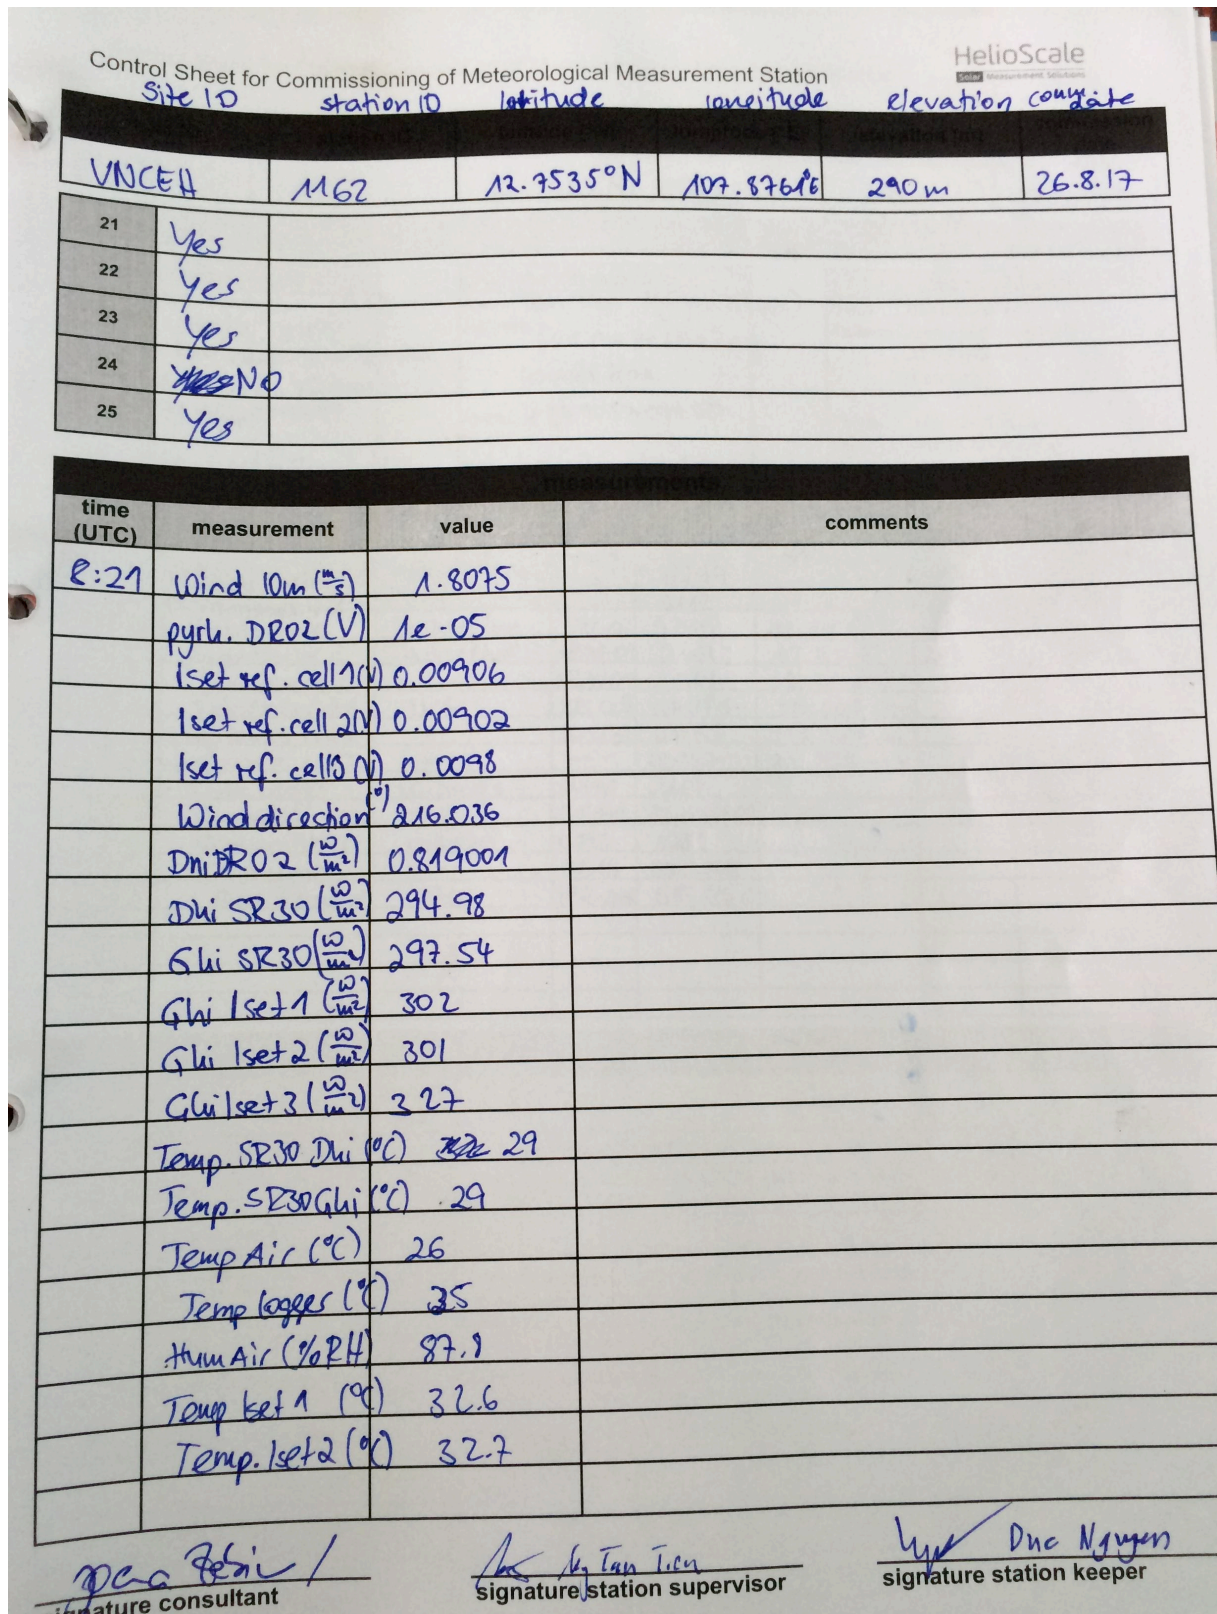 Control Sheet for Commissioning of Meteorological Measurement Station
HelioScale
Solar Measurement Solutions
Site ID station ID latitude longitude elevation comm. date
VNCEH 1162 12.7535°N 107.8761°E 290m 26.8.17
21 Yes
22 Yes
23 Yes
24 NO
25 Yes
measurements
time (UTC) measurement value comments
8:21 Wind 10m (m/s) 1.8075
pyrh. DR02 (V) 1e-05
Iset ref. cell 1 (V) 0.00906
Iset ref. cell 2 (V) 0.00902
Iset ref. cell3 (V) 0.0098
Wind direction (°) 216.036
DniDR02 (w/m²) 0.819001
Dhi SR30 (w/m²) 294.98
Ghi SR30 (w/m²) 297.54
Ghi Iset 1 (w/m²) 302
Ghi Iset 2 (w/m²) 301
Ghi Iset 3 (w/m²) 327
Temp. SR30 Dhi (°C) 29
Temp. SR30 Ghi (°C) 29
Temp Air (°C) 26
Temp logger (°C) 35
Hum Air (%RH) 87.8
Temp Iset 1 (°C) 32.6
Temp. Iset 2 (°C) 32.7
Ng Tan Tien Duc Nguyen
signature consultant signature station supervisor signature station keeper